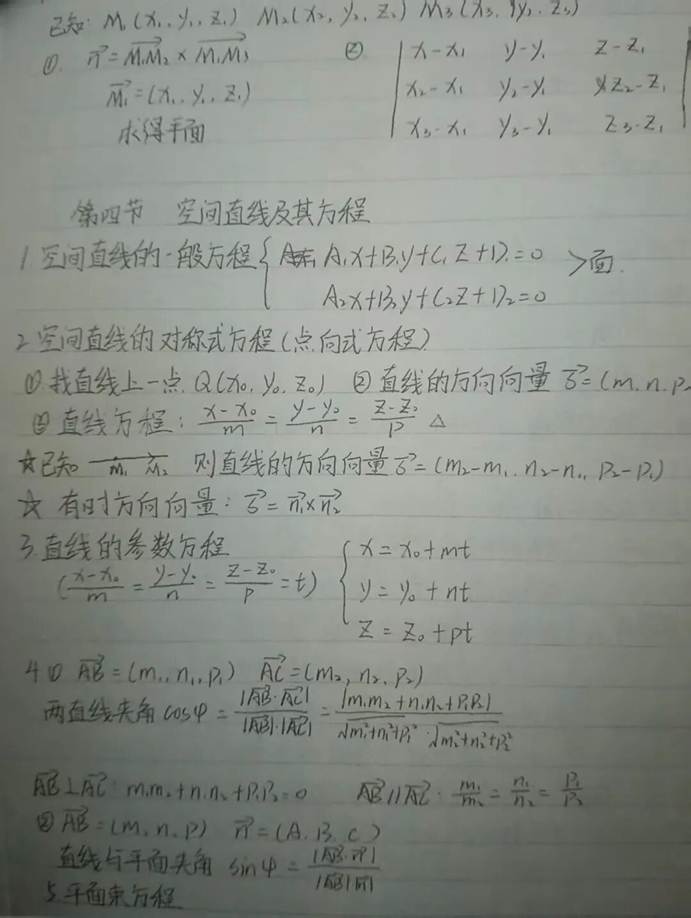 已知: M₁(x₁, y₁, z₁) M₂(x₂, y₂, z₂) M₃(x₃, y₃, z₃)
① n⃗ = M₁M₂⃗ × M₁M₃⃗ ② | x-x₁ y-y₁ z-z₁ |
M₁⃗ = (x₁, y₁, z₁) | x₂-x₁ y₂-y₁ z₂-z₁ |
求得平面 | x₃-x₁ y₃-y₁ z₃-z₁ |
第四节 空间直线及其方程
1 空间直线的一般方程 { A₁x+B₁y+C₁z+D₁=0 >面.
A₂x+B₂y+C₂z+D₂=0
2 空间直线的对称式方程(点向式方程)
① 找直线上一点 Q(x₀, y₀, z₀) ② 直线的方向向量 s⃗=(m, n, p
③ 直线方程: (x-x₀)/m = (y-y₀)/n = (z-z₀)/p △
☆已知 M₁ M₂ 则直线的方向向量 s⃗=(m₂-m₁, n₂-n₁, p₂-p₁)
☆ 有时方向向量: s⃗=n₁⃗×n₂⃗
3 直线的参数方程 { x=x₀+mt
((x-x₀)/m = (y-y₀)/n = (z-z₀)/p = t) y=y₀+nt
z=z₀+pt
4 ① AB⃗=(m₁, n₁, p₁) AC⃗=(m₂, n₂, p₂)
两直线夹角 cosφ = |AB⃗·AC⃗| / |AB⃗|·|AC⃗| = |m₁m₂+n₁n₂+p₁p₂| / √(m₁²+n₁²+p₁²)·√(m₂²+n₂²+p₂²)
AB⃗⊥AC⃗: m₁m₂+n₁n₂+p₁p₂=0 AB⃗//AC⃗: m₁/m₂ = n₁/n₂ = p₁/p₂
② AB⃗=(m, n, p) n⃗=(A, B, C)
直线与平面夹角 sinφ = |AB⃗·n⃗| / |AB⃗||n⃗|
5 平面束方程